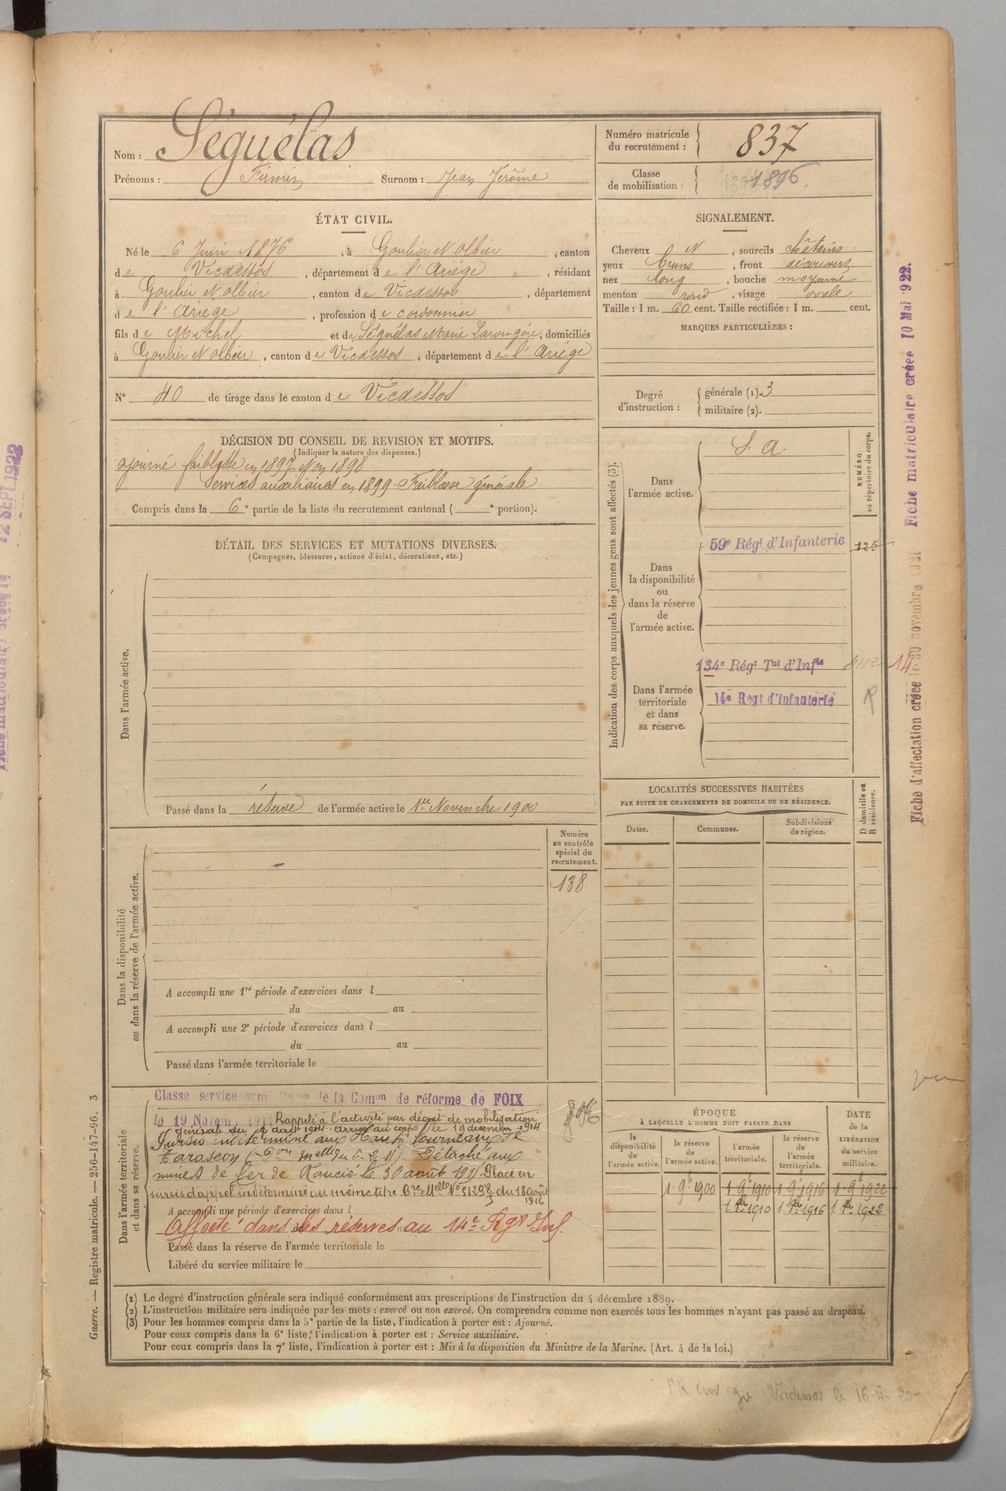 Nom : Séguélas
Prénoms : Firmin Surnom : Jean Jérôme
Numéro matricule
du recrutement : 837
Classe
de mobilisation : 1896.
ÉTAT CIVIL.
Né le 6 Juin 1876, à Goulier N olbier, canton
de Vicdessos, département de l'Ariège, résidant
à Goulier N olbier, canton de Vicdessos, département
de l'Ariège, profession de cordonnier
fils de Michel et de Séguélas Marie, domiciliés
à Goulier N olbier, canton de Vicdessos, département de l'Ariège
N° 40 de tirage dans le canton de Vicdessos
SIGNALEMENT.
Cheveux N, sourcils châtains
yeux bruns, front découvert
nez long, bouche moyenne
menton rond, visage ovale
Taille : 1 m. 60 cent. Taille rectifiée : 1 m. cent.
MARQUES PARTICULIÈRES :
Degré
d'instruction :
générale (1). 3
militaire (2).
DÉCISION DU CONSEIL DE REVISION ET MOTIFS.
(Indiquer la nature des dispenses.)
ajourné faiblesse en 1897 1898
Services auxiliaires en 1899 - Faiblesse générale
Compris dans la 6e partie de la liste du recrutement cantonal ( e portion).
DÉTAIL DES SERVICES ET MUTATIONS DIVERSES.
(Campagnes, blessures, actions d'éclat, décorations, etc.)
Dans l'armée active.
Passé dans la réserve de l'armée active le 1er Novembre 1900
Indication des corps auxquels les jeunes gens sont affectés (3).
NUMÉRO
au répertoire du corps.
Dans
l'armée active.
S. A.
59e Régt d'Infanterie 125
Dans
la disponibilité
ou
dans la réserve
de
l'armée active.
134e Régt Tal d'Infie 14
14e Régt d'Infanterie R
Dans l'armée
territoriale
et dans
sa réserve.
LOCALITÉS SUCCESSIVES HABITÉES
PAR SUITE DE CHANGEMENTS DE DOMICILE OU DE RÉSIDENCE.
Dates.
Communes.
Subdivisions
de région.
D domicile ou
R résidence.
Dans la disponibilité
ou dans la réserve de l'armée active.
Numéro
au contrôle
spécial du
recrutement.
138
A accompli une 1re période d'exercices dans l
du au
A accompli une 2e période d'exercices dans l
du au
Passé dans l'armée territoriale le
Dans l'armée territoriale
et dans sa réserve.
Classe service de la Comon de réforme de FOIX
le 19 Novem Rappelé à l'activité par décret de mobilisation
générale du 1 août 1914 arrivé au corps le 18 décembre 1914
Sursis indéterminé aux Hauts fourneaux de
Tarascon Détaché aux
mines de fer de Rancié le 30 août 191 Placé en
sursis d'appel indéterminé au même titre du 18 août
1916
A accompli une période d'exercices dans l
Affecté dans les réserves au 14e Rgt Inf.
Passé dans la réserve de l'armée territoriale le
Libéré du service militaire le
ÉPOQUE
À LAQUELLE L'HOMME DOIT PASSER DANS
la
disponibilité
de
l'armée active.
la réserve
de
l'armée active.
l'armée
territoriale.
la réserve
de
l'armée
territoriale.
DATE
de la
LIBÉRATION
du service
militaire.
1 9e 1900 1 9e 1910 1 9e 1916 1 9e 1922
1 1910 1 1916 1 1922
(1) Le degré d'instruction générale sera indiqué conformément aux prescriptions de l'instruction du 4 décembre 1889.
(2) L'instruction militaire sera indiquée par les mots : exercé ou non exercé. On comprendra comme non exercés tous les hommes n'ayant pas passé au drapeau.
(3) Pour les hommes compris dans la 5e partie de la liste, l'indication à porter est : Ajourné.
Pour ceux compris dans la 6e liste, l'indication à porter est : Service auxiliaire.
Pour ceux compris dans la 7e liste, l'indication à porter est : Mis à la disposition du Ministre de la Marine. (Art. 4 de la loi.)
Guerre. — Registre matricule. — 256-147-96. 3
Fiche matriculaire créée 10 Mai 1922.
Fiche d'affectation créée le 30 novembre
12 SEPT 1922
Vicdessos le 16-II-20